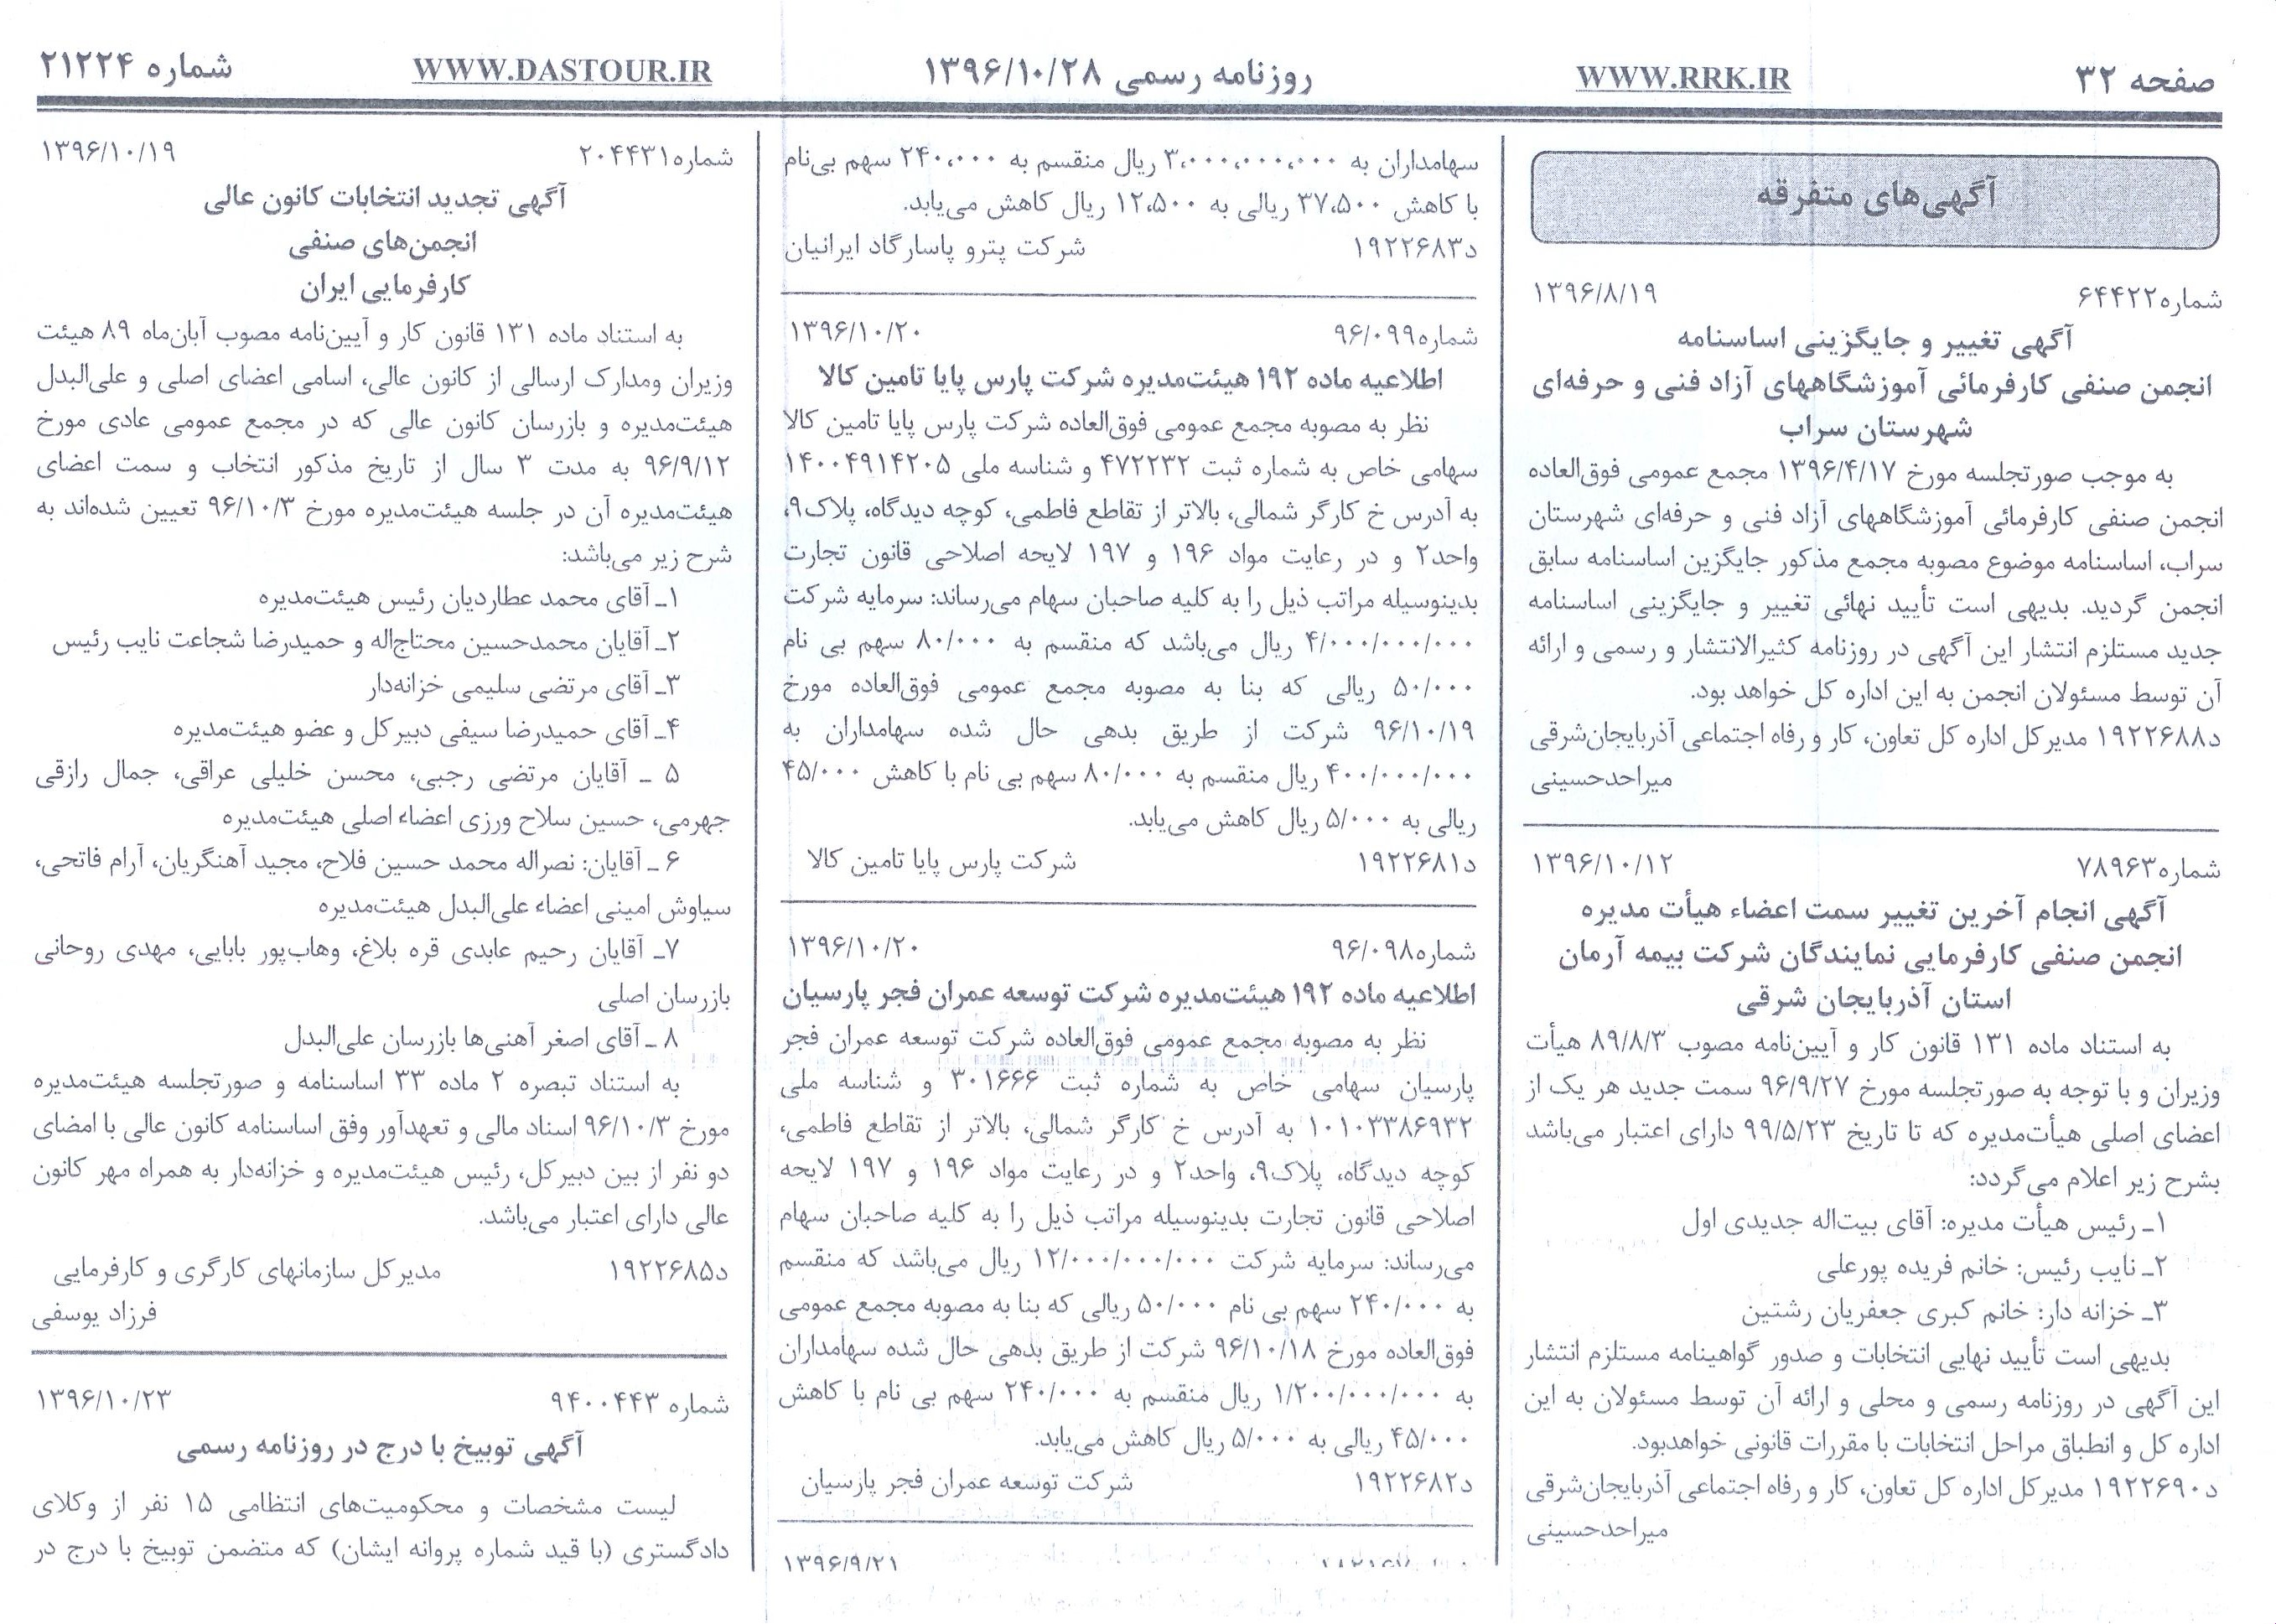 صفحه ۳۲
WWW.RRK.IR
روزنامه رسمی ۱۳۹۶/۱۰/۲۸
WWW.DASTOUR.IR
شماره ۲۱۲۲۴
آگهی‌های متفرقه
شماره۶۴۴۲۲ ۱۳۹۶/۸/۱۹
آگهی تغییر و جایگزینی اساسنامه
انجمن صنفی کارفرمائی آموزشگاههای آزاد فنی و حرفه‌ای
شهرستان سراب
به موجب صورتجلسه مورخ ۱۳۹۶/۴/۱۷ مجمع عمومی فوق‌العاده
انجمن صنفی کارفرمائی آموزشگاههای آزاد فنی و حرفه‌ای شهرستان
سراب، اساسنامه موضوع مصوبه مجمع مذکور جایگزین اساسنامه سابق
انجمن گردید. بدیهی است تأیید نهائی تغییر و جایگزینی اساسنامه
جدید مستلزم انتشار این آگهی در روزنامه کثیرالانتشار و رسمی و ارائه
آن توسط مسئولان انجمن به این اداره کل خواهد بود.
د۱۹۲۲۶۸۸ مدیرکل اداره کل تعاون، کار و رفاه اجتماعی آذربایجان‌شرقی
میراحدحسینی
شماره۷۸۹۶۳ ۱۳۹۶/۱۰/۱۲
آگهی انجام آخرین تغییر سمت اعضاء هیأت مدیره
انجمن صنفی کارفرمایی نمایندگان شرکت بیمه آرمان
استان آذربایجان شرقی
به استناد ماده ۱۳۱ قانون کار و آیین‌نامه مصوب ۸۹/۸/۳ هیأت
وزیران و با توجه به صورتجلسه مورخ ۹۶/۹/۲۷ سمت جدید هر یک از
اعضای اصلی هیأت‌مدیره که تا تاریخ ۹۹/۵/۲۳ دارای اعتبار می‌باشد
بشرح زیر اعلام می‌گردد:
۱ـ رئیس هیأت مدیره: آقای بیت‌اله جدیدی اول
۲ـ نایب رئیس: خانم فریده پورعلی
۳ـ خزانه دار: خانم کبری جعفریان رشتین
بدیهی است تأیید نهایی انتخابات و صدور گواهینامه مستلزم انتشار
این آگهی در روزنامه رسمی و محلی و ارائه آن توسط مسئولان به این
اداره کل و انطباق مراحل انتخابات با مقررات قانونی خواهدبود.
د۱۹۲۲۶۹۰ مدیرکل اداره کل تعاون، کار و رفاه اجتماعی آذربایجان‌شرقی
میراحدحسینی
سهامداران به ۳،۰۰۰،۰۰۰،۰۰۰ ریال منقسم به ۲۴۰،۰۰۰ سهم بی‌نام
با کاهش ۳۷،۵۰۰ ریالی به ۱۲،۵۰۰ ریال کاهش می‌یابد.
د۱۹۲۲۶۸۳ شرکت پترو پاسارگاد ایرانیان
شماره۹۶/۰۹۹ ۱۳۹۶/۱۰/۲۰
اطلاعیه ماده ۱۹۲ هیئت‌مدیره شرکت پارس پایا تامین کالا
نظر به مصوبه مجمع عمومی فوق‌العاده شرکت پارس پایا تامین کالا
سهامی خاص به شماره ثبت ۴۷۲۲۳۲ و شناسه ملی ۱۴۰۰۴۹۱۴۲۰۵
به آدرس خ کارگر شمالی، بالاتر از تقاطع فاطمی، کوچه دیدگاه، پلاک۹،
واحد۲ و در رعایت مواد ۱۹۶ و ۱۹۷ لایحه اصلاحی قانون تجارت
بدینوسیله مراتب ذیل را به کلیه صاحبان سهام می‌رساند: سرمایه شرکت
۴/۰۰۰/۰۰۰/۰۰۰ ریال می‌باشد که منقسم به ۸۰/۰۰۰ سهم بی نام
۵۰/۰۰۰ ریالی که بنا به مصوبه مجمع عمومی فوق‌العاده مورخ
۹۶/۱۰/۱۹ شرکت از طریق بدهی حال شده سهامداران به
۴۰۰/۰۰۰/۰۰۰ ریال منقسم به ۸۰/۰۰۰ سهم بی نام با کاهش ۴۵/۰۰۰
ریالی به ۵/۰۰۰ ریال کاهش می‌یابد.
د۱۹۲۲۶۸۱ شرکت پارس پایا تامین کالا
شماره۹۶/۰۹۸ ۱۳۹۶/۱۰/۲۰
اطلاعیه ماده ۱۹۲ هیئت‌مدیره شرکت توسعه عمران فجر پارسیان
نظر به مصوبه مجمع عمومی فوق‌العاده شرکت توسعه عمران فجر
پارسیان سهامی خاص به شماره ثبت ۳۰۱۶۶۶ و شناسه ملی
۱۰۱۰۳۳۸۶۹۳۲ به آدرس خ کارگر شمالی، بالاتر از تقاطع فاطمی،
کوچه دیدگاه، پلاک۹، واحد۲ و در رعایت مواد ۱۹۶ و ۱۹۷ لایحه
اصلاحی قانون تجارت بدینوسیله مراتب ذیل را به کلیه صاحبان سهام
می‌رساند: سرمایه شرکت ۱۲/۰۰۰/۰۰۰/۰۰۰ ریال می‌باشد که منقسم
به ۲۴۰/۰۰۰ سهم بی نام ۵۰/۰۰۰ ریالی که بنا به مصوبه مجمع عمومی
فوق‌العاده مورخ ۹۶/۱۰/۱۸ شرکت از طریق بدهی حال شده سهامداران
به ۱/۲۰۰/۰۰۰/۰۰۰ ریال منقسم به ۲۴۰/۰۰۰ سهم بی نام با کاهش
۴۵/۰۰۰ ریالی به ۵/۰۰۰ ریال کاهش می‌یابد.
د۱۹۲۲۶۸۲ شرکت توسعه عمران فجر پارسیان
۱۳۹۶/۹/۲۱
شماره۲۰۴۴۳۱ ۱۳۹۶/۱۰/۱۹
آگهی تجدید انتخابات کانون عالی
انجمن‌های صنفی
کارفرمایی ایران
به استناد ماده ۱۳۱ قانون کار و آیین‌نامه مصوب آبان‌ماه ۸۹ هیئت
وزیران ومدارک ارسالی از کانون عالی، اسامی اعضای اصلی و علی‌البدل
هیئت‌مدیره و بازرسان کانون عالی که در مجمع عمومی عادی مورخ
۹۶/۹/۱۲ به مدت ۳ سال از تاریخ مذکور انتخاب و سمت اعضای
هیئت‌مدیره آن در جلسه هیئت‌مدیره مورخ ۹۶/۱۰/۳ تعیین شده‌اند به
شرح زیر می‌باشد:
۱ـ آقای محمد عطاردیان رئیس هیئت‌مدیره
۲ـ آقایان محمدحسین محتاج‌اله و حمیدرضا شجاعت نایب رئیس
۳ـ آقای مرتضی سلیمی خزانه‌دار
۴ـ آقای حمیدرضا سیفی دبیرکل و عضو هیئت‌مدیره
۵ ـ آقایان مرتضی رجبی، محسن خلیلی عراقی، جمال رازقی
جهرمی، حسین سلاح ورزی اعضاء اصلی هیئت‌مدیره
۶ ـ آقایان: نصراله محمد حسین فلاح، مجید آهنگریان، آرام فاتحی،
سیاوش امینی اعضاء علی‌البدل هیئت‌مدیره
۷ـ آقایان رحیم عابدی قره بلاغ، وهاب‌پور بابایی، مهدی روحانی
بازرسان اصلی
۸ ـ آقای اصغر آهنی‌ها بازرسان علی‌البدل
به استناد تبصره ۲ ماده ۳۳ اساسنامه و صورتجلسه هیئت‌مدیره
مورخ ۹۶/۱۰/۳ اسناد مالی و تعهدآور وفق اساسنامه کانون عالی با امضای
دو نفر از بین دبیرکل، رئیس هیئت‌مدیره و خزانه‌دار به همراه مهر کانون
عالی دارای اعتبار می‌باشد.
د۱۹۲۲۶۸۵ مدیرکل سازمانهای کارگری و کارفرمایی
فرزاد یوسفی
شماره ۹۴۰۰۴۴۳ ۱۳۹۶/۱۰/۲۳
آگهی توبیخ با درج در روزنامه رسمی
لیست مشخصات و محکومیت‌های انتظامی ۱۵ نفر از وکلای
دادگستری (با قید شماره پروانه ایشان) که متضمن توبیخ با درج در